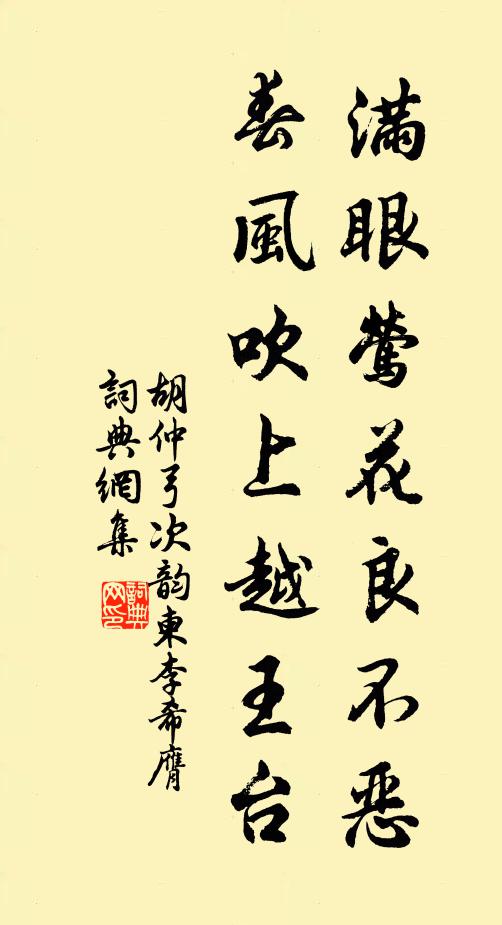 滿眼鶯花良不惡
春風吹上越王台
胡仲弓次韵東李希膺
詞典網集
詞典網印